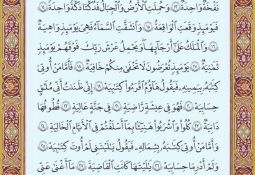 نَفْخَةٌ وَٰحِدَةٌ ١٣ وَحُمِلَتِ ٱلْأَرْضُ وَٱلْجِبَالُ فَدُكَّتَا دَكَّةً وَٰحِدَةً ١٤
فَيَوْمَئِذٍ وَقَعَتِ ٱلْوَاقِعَةُ ١٥ وَٱنشَقَّتِ ٱلسَّمَآءُ فَهِىَ يَوْمَئِذٍ وَاهِيَةٌ
١٦ وَٱلْمَلَكُ عَلَىٰٓ أَرْجَآئِهَا وَيَحْمِلُ عَرْشَ رَبِّكَ فَوْقَهُمْ يَوْمَئِذٍ
ثَمَٰنِيَةٌ ١٧ يَوْمَئِذٍ تُعْرَضُونَ لَا تَخْفَىٰ مِنكُمْ خَافِيَةٌ ١٨ فَأَمَّا مَنْ أُوتِىَ
كِتَٰبَهُۥ بِيَمِينِهِۦ فَيَقُولُ هَآؤُمُ ٱقْرَءُوا۟ كِتَٰبِيَهْ ١٩ إِنِّى ظَنَنتُ أَنِّى مُلَٰقٍ
حِسَابِيَهْ ٢٠ فَهُوَ فِى عِيشَةٍ رَّاضِيَةٍ ٢١ فِى جَنَّةٍ عَالِيَةٍ ٢٢ قُطُوفُهَا
دَانِيَةٌ ٢٣ كُلُوا۟ وَٱشْرَبُوا۟ هَنِيٓـًٔۢا بِمَآ أَسْلَفْتُمْ فِى ٱلْأَيَّامِ ٱلْخَالِيَةِ ٢٤
وَأَمَّا مَنْ أُوتِىَ كِتَٰبَهُۥ بِشِمَالِهِۦ فَيَقُولُ يَٰلَيْتَنِى لَمْ أُوتَ كِتَٰبِيَهْ ٢٥
وَلَمْ أَدْرِ مَا حِسَابِيَهْ ٢٦ يَٰلَيْتَهَا كَانَتِ ٱلْقَاضِيَةَ ٢٧ مَآ أَغْنَىٰ عَنِّى